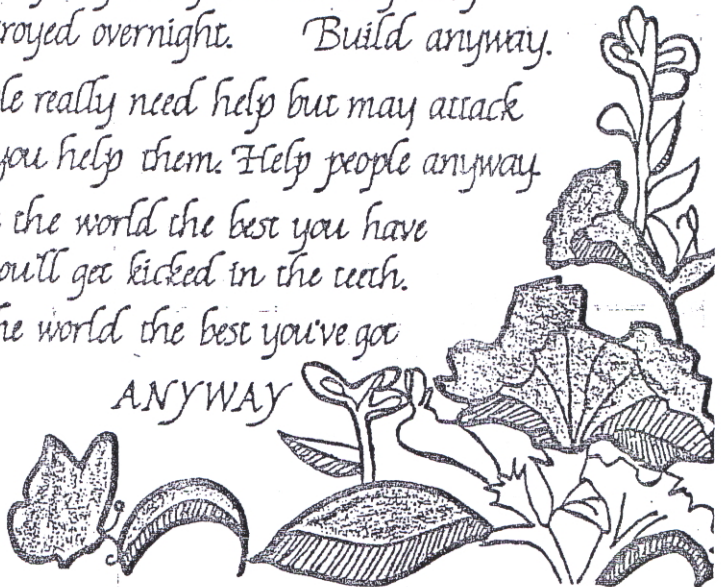 royed overnight. Build anyway.
le really need help but may attack
you help them. Help people anyway.
the world the best you have
ou'll get kicked in the teeth.
he world the best you've got
ANYWAY